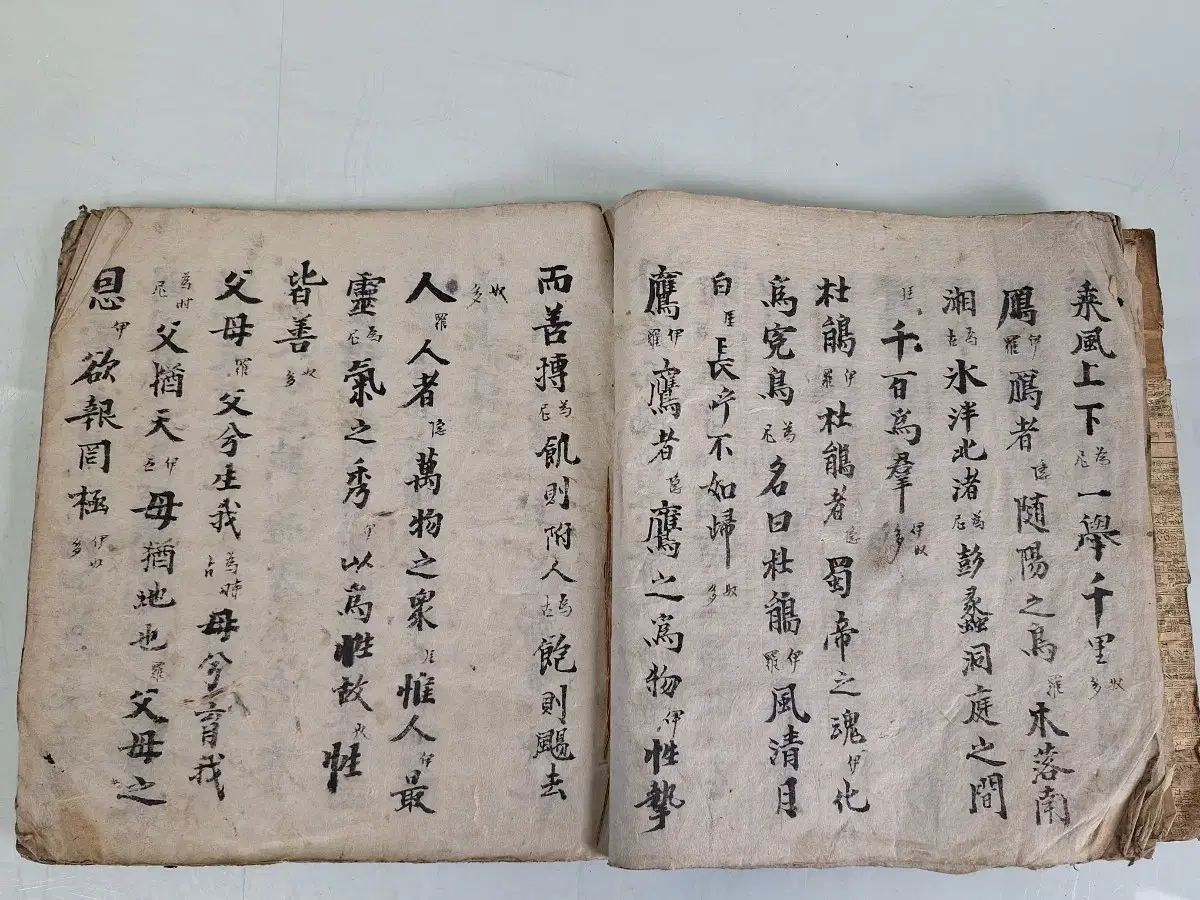 乘風上下為尼一擧千里奴多
鴈伊羅鴈者隱随陽之鳥羅木落南
湘為古氷泮北渚為尼彭蠡洞庭之間
厓千百為羣伊奴多
杜鵑伊羅杜鵑者隱蜀帝之魂伊化
為寃鳥為尼名曰杜鵑伊羅風清月
白厓長吁不如歸奴多
鷹伊羅鷹者隱鷹之為物伊性摯
而善摶為尼飢則附人為古飽則颺去
奴多
人羅人者隱萬物之衆厓惟人伊最
靈為尼氣之秀伊以為性故奴性
皆善奴多
父母羅父兮生我為時古母兮育我
為時尼父猶天伊五母猶地也羅父母之
恩伊欲報罔極伊奴多